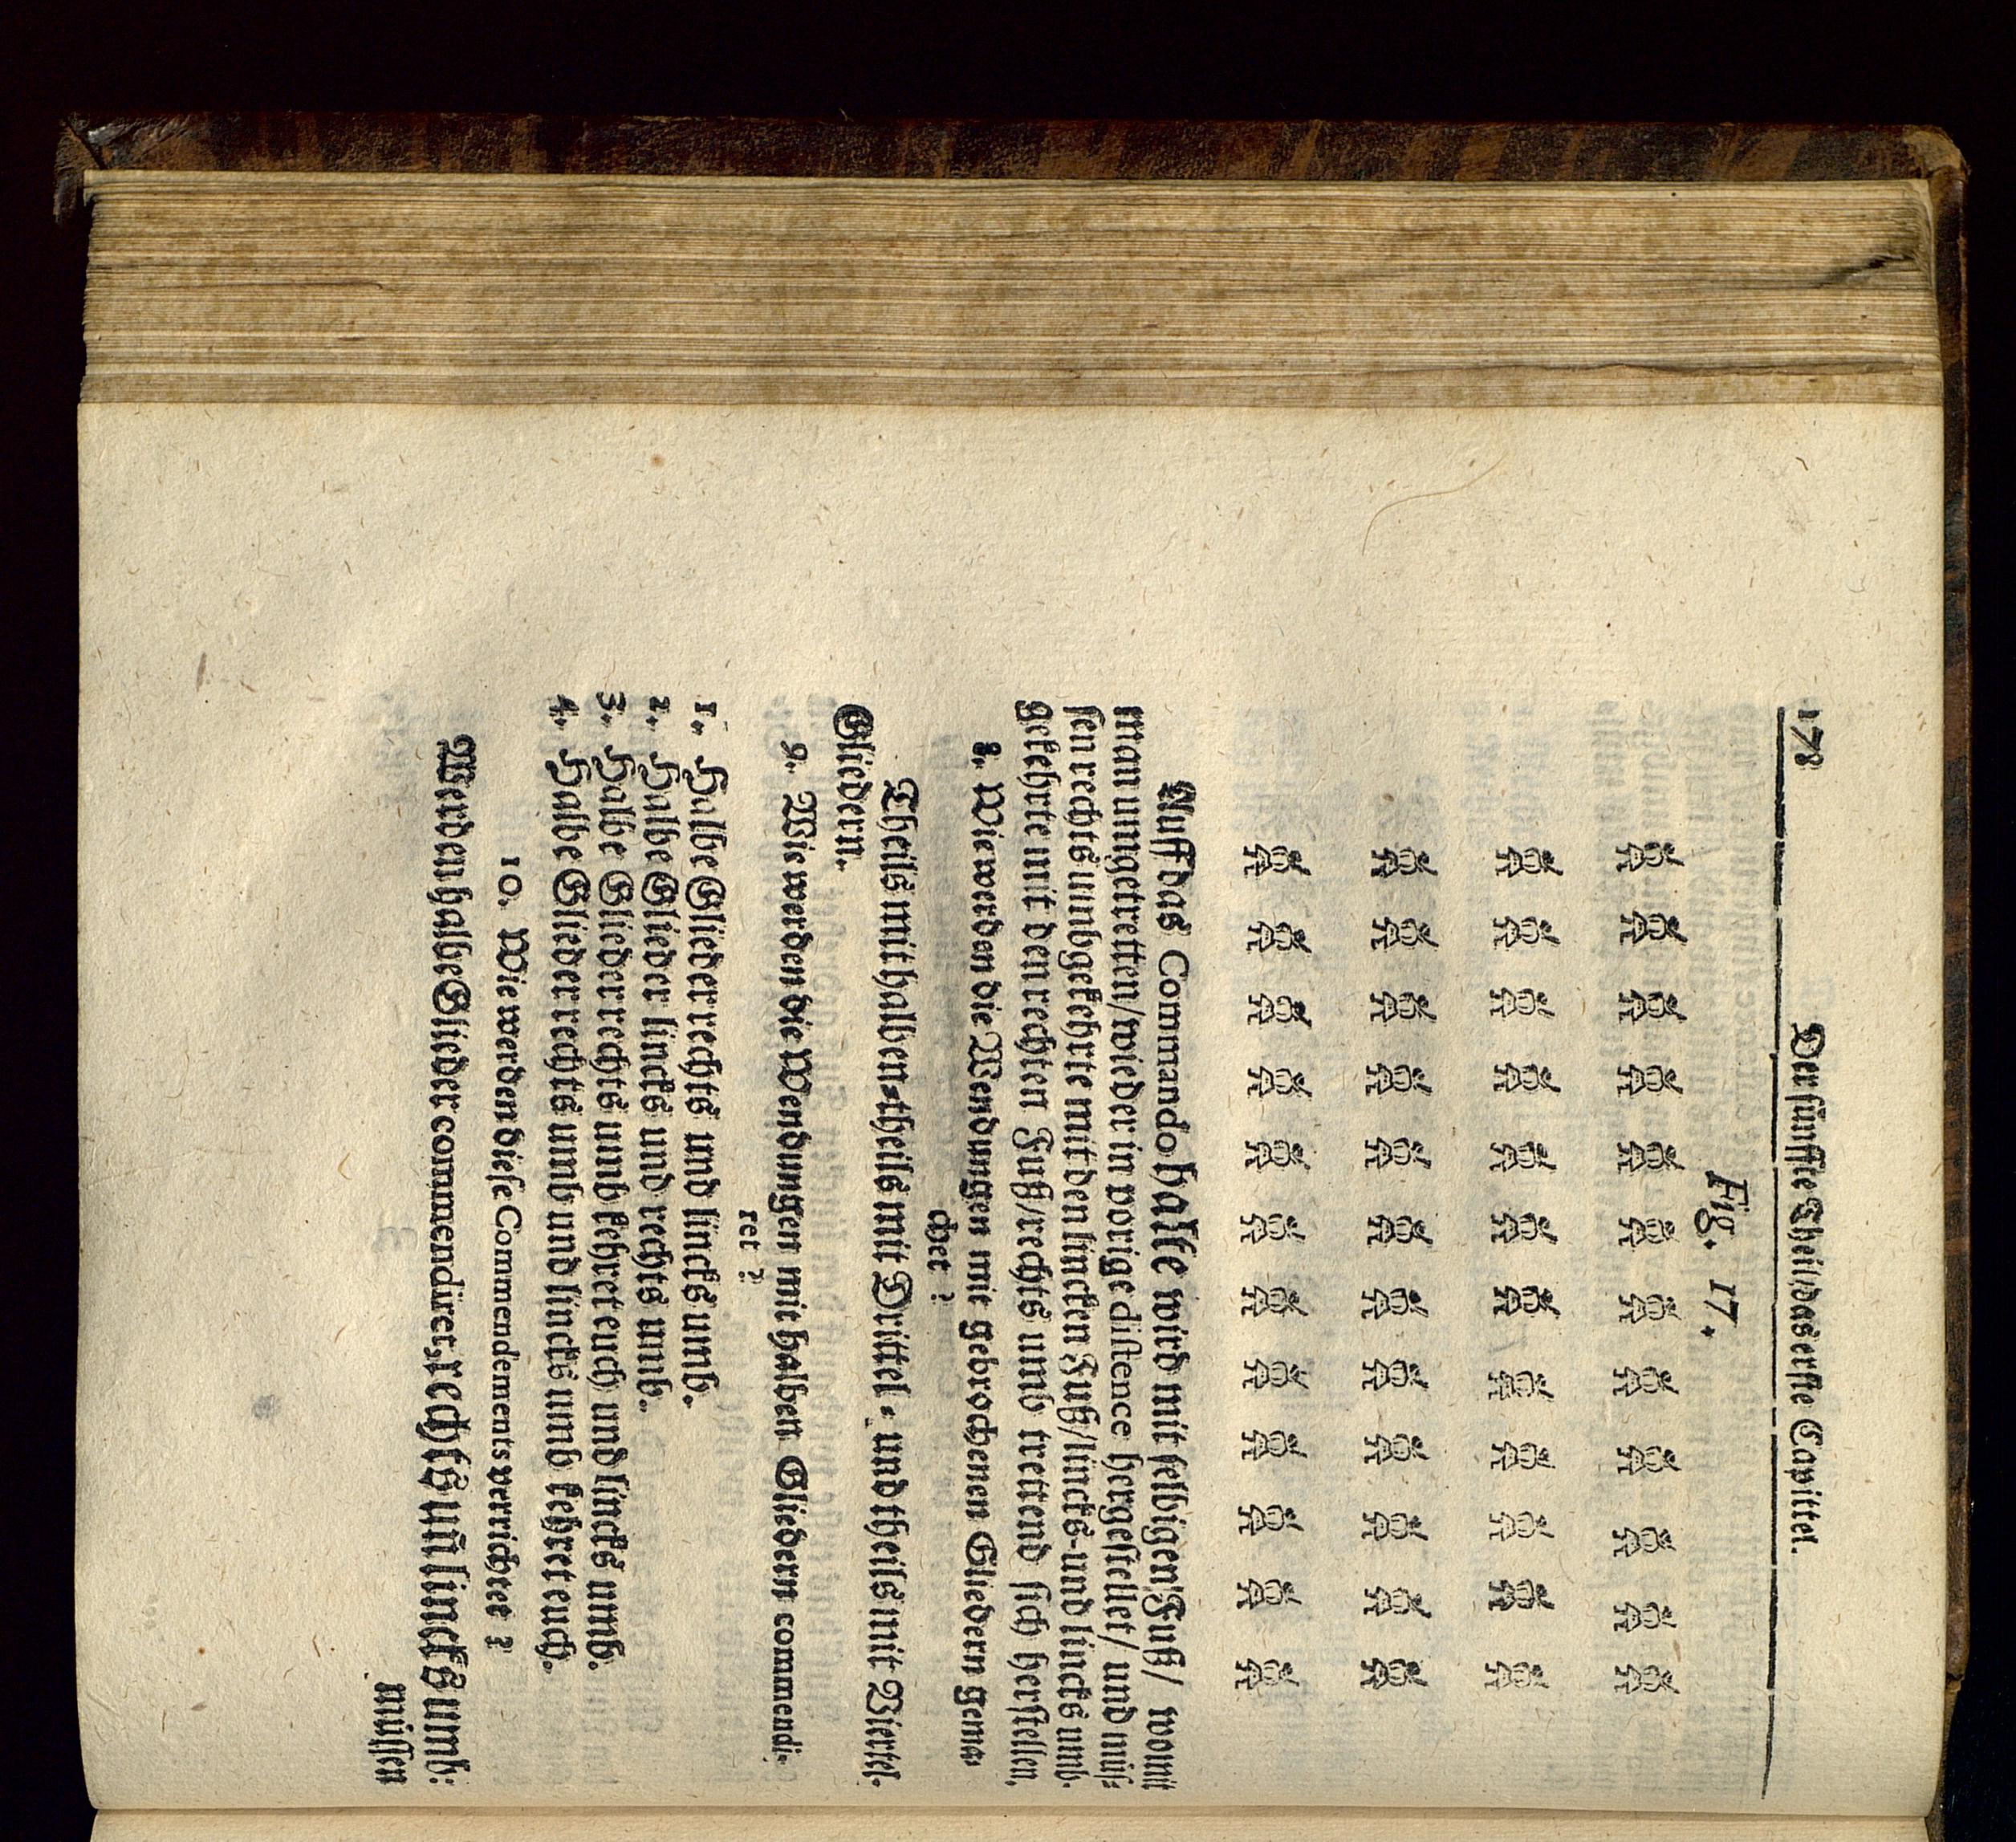 178 Der fünffte Theil/das erste Capittel.
Fig. 17.
Auff das Commando halte wird mit selbigen Fuß/ womit
man umgetretten/wieder in vorige distence hergestellet/ und müs-
sen rechts umbgekehrte mit den lincken Fuß/lincks-und lincks umb
gekehrte mit den rechten Fuß/rechts umb trettend sich herstellen.
8. Wie werden die Wendungen mit gebrochenen Gliedern gema-
chet ?
Theils mit halben-theils mit Drittel- und theils mit Viertel-
Gliedern.
9. Wie werden die Wendungen mit halben Gliedern commendi-
ret ?
1. Halbe Glieder rechts und lincks umb.
2. Halbe Glieder lincks und rechts umb.
3. Halbe Glieder rechts umb kehret euch und lincks umb.
4. Halbe Glieder rechts umb und lincks umb kehret euch.
10. Wie werden diese Commendements verrichtet ?
Werden halbe Glieder commendiret, rechts uñ lincks umb:
müssen